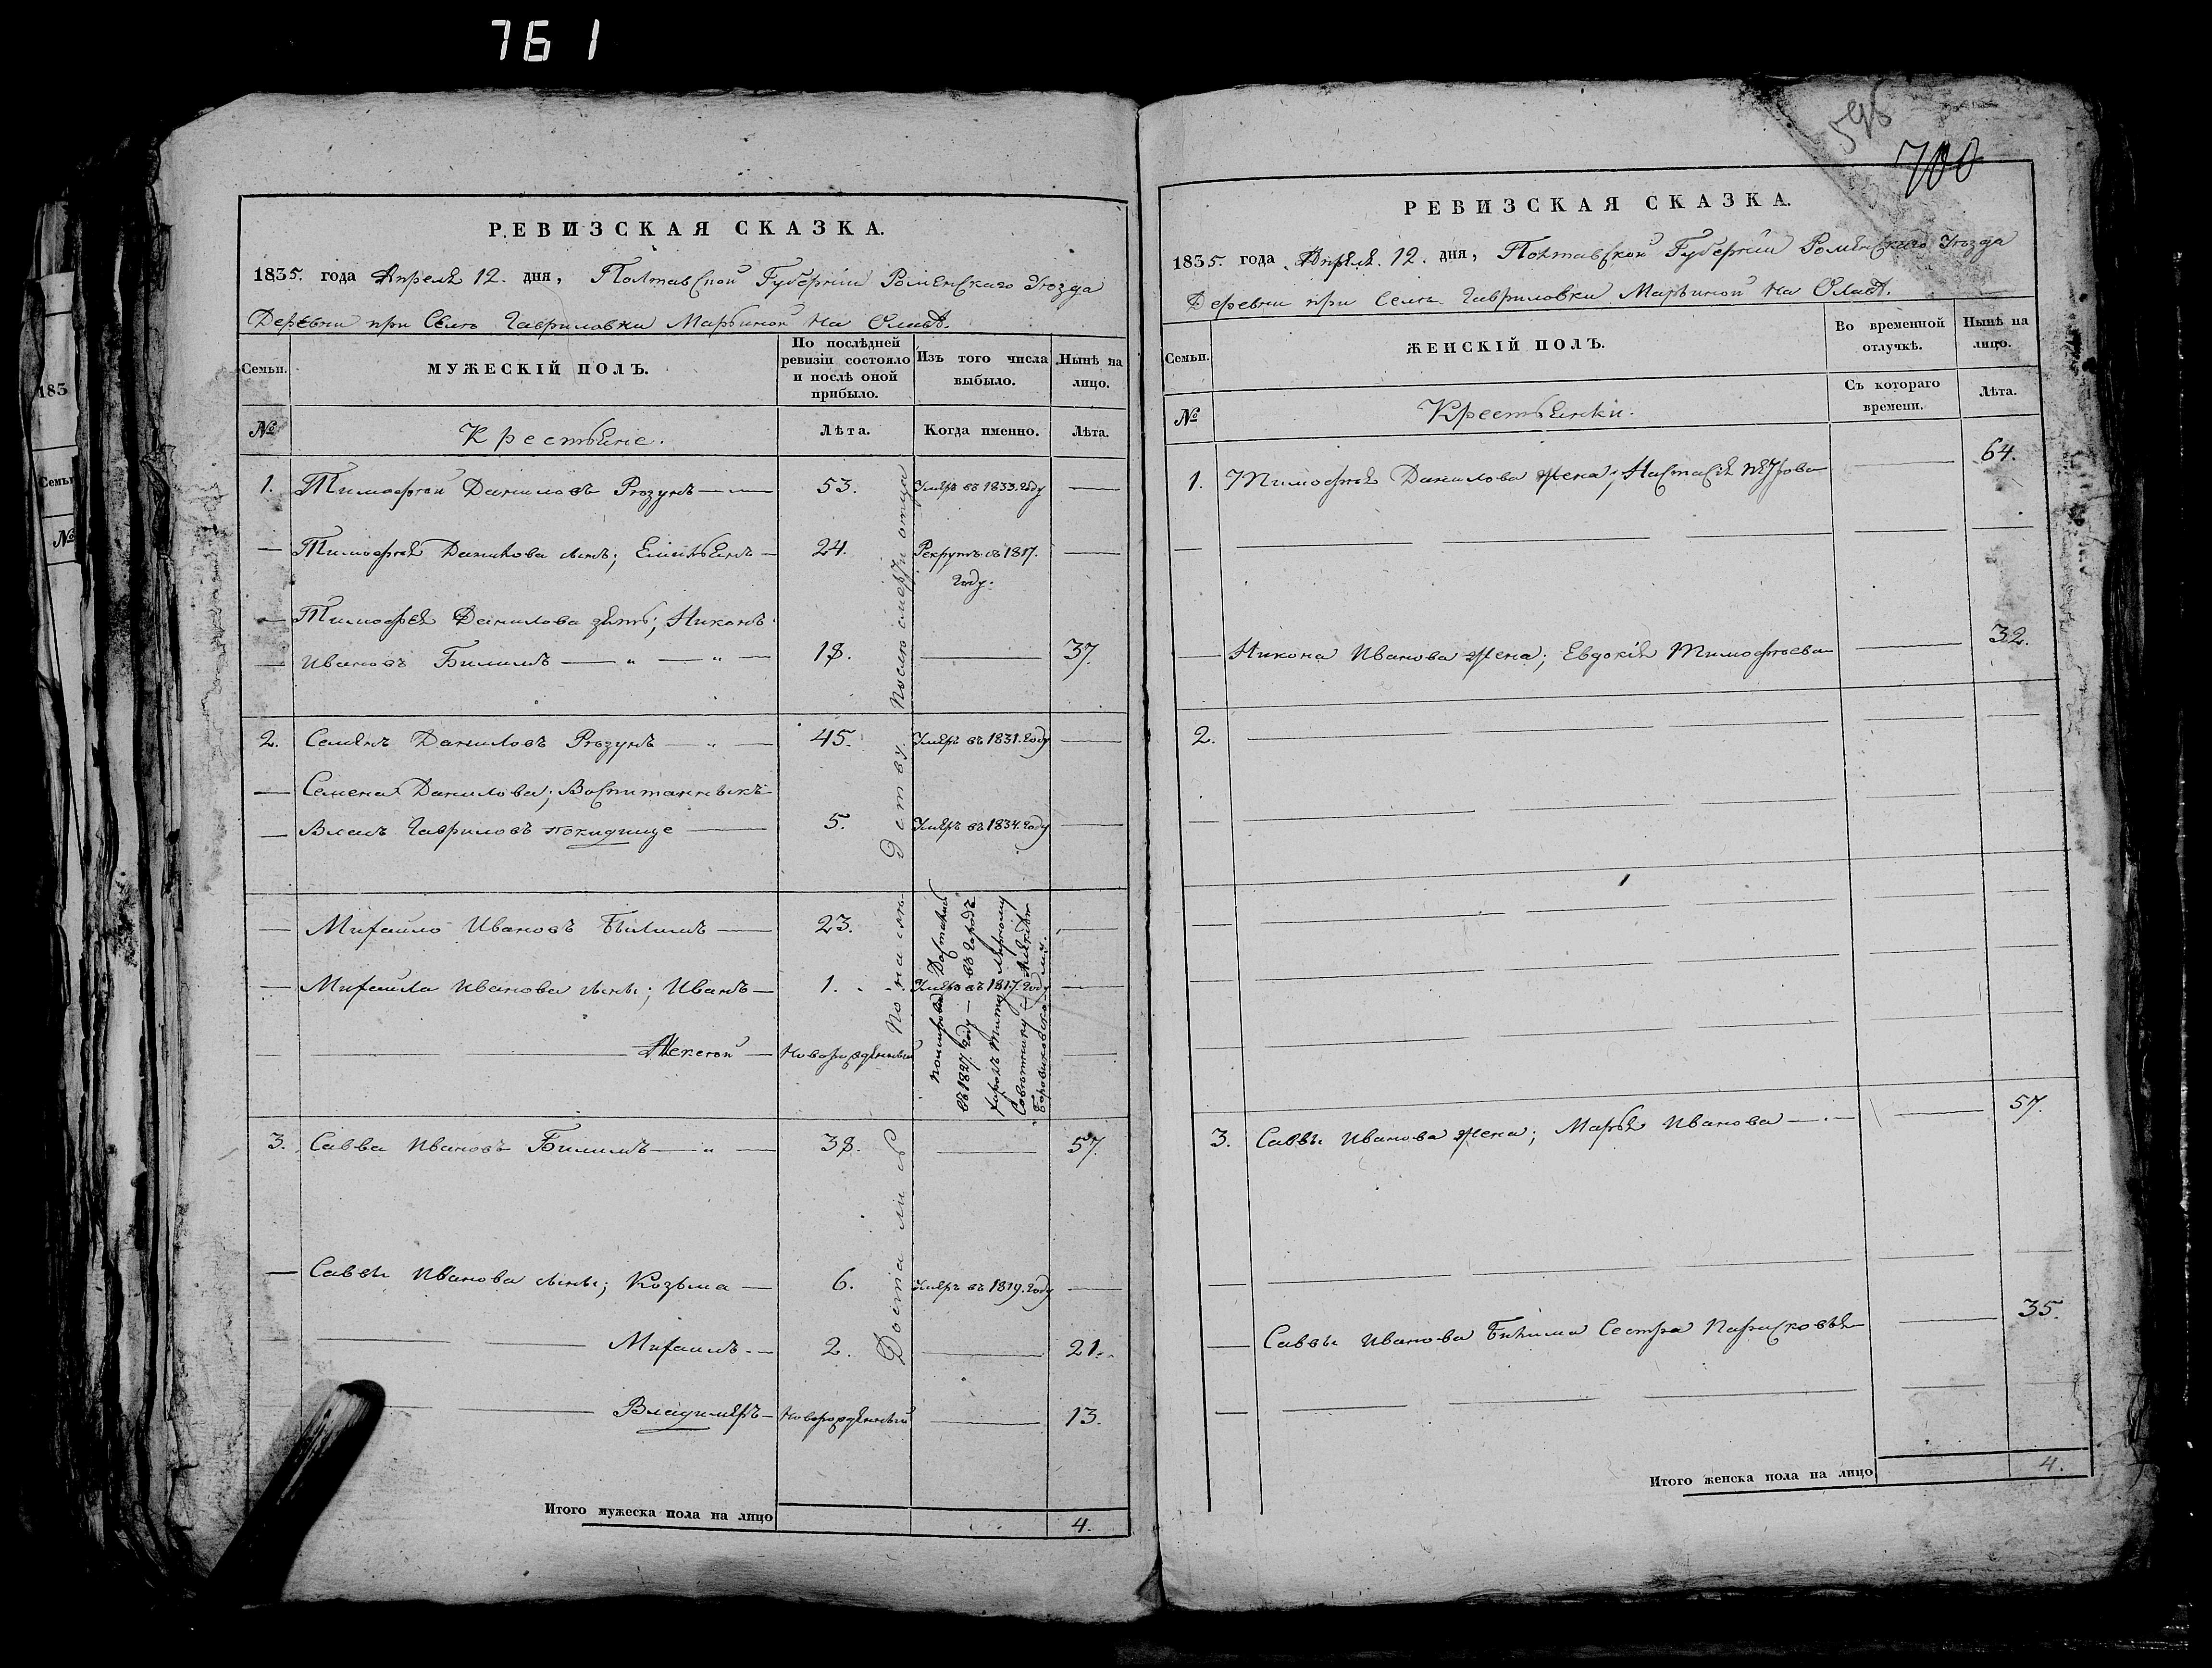 761
183
Семьи
№
РЕВИЗСКАЯ СКАЗКА.
1835. года Апреля 12. дня, Полтавской Губерніи Роменскаго Уезда
Деревни при Селѣ Гавриловки Марьиной на
Семьи.
МУЖЕСКІЙ ПОЛЪ.
По послѣдней ревизіи состояло и послѣ оной прибыло.
Изъ того числа выбыло.
Нынѣ на лицо.
№
Крестьяне.
Лѣта.
Когда именно.
Лѣта.
1. Тимофей Даниловъ 53. Умеръ въ 1833. году
Тимофея Данилова сынъ; Емельянъ 24. Рекрутъ въ 1817. году.
Тимофея Данилова зять; Никонъ
Ивановъ Билимъ 18. 37.
2. Семенъ Даниловъ 45. Умеръ въ 1831. году
Семена Данилова; Воспитанникъ
Власъ Гавриловъ покидище 5. Умеръ въ 1834. году
Михайло Ивановъ Билимъ 23.
Михайла Иванова сынъ; Иванъ 1. Умеръ въ 1817. году
Алексей Новорожденный
3. Савва Ивановъ Билимъ 38. 57.
Саввы Иванова сынъ; Козьма 6. Умеръ въ 1819. году
Михаилъ 2. 21.
Владимеръ Новорожденный 13.
Достались по наследству после смерти отца
въ 1827. году в городѣ
Итого мужеска пола на лицо 4.
596
700
РЕВИЗСКАЯ СКАЗКА.
1835. года Апреля. 12. дня, Полтавской Губерніи Роменскаго Уезда
Деревни при Селѣ Гавриловки Марьиной на
Семьи.
ЖЕНСКІЙ ПОЛЪ.
Во временной отлучкѣ.
Нынѣ на лицо.
Съ котораго времени.
Лѣта.
№
Крестьянки.
1. Тимофея Данилова жена; Настасія Петрова 64.
Никона Иванова жена; Евдокія Тимофеева 32.
2.
3. Саввы Иванова жена; Марья Иванова 57.
Саввы Иванова Билима Сестра Парасковья 35.
Итого женска пола на лицо 4.